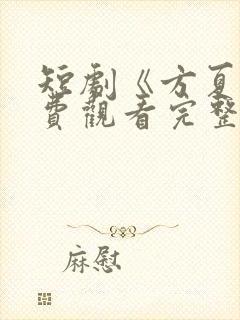 短劇《方夏
費觀看完整
麻慰